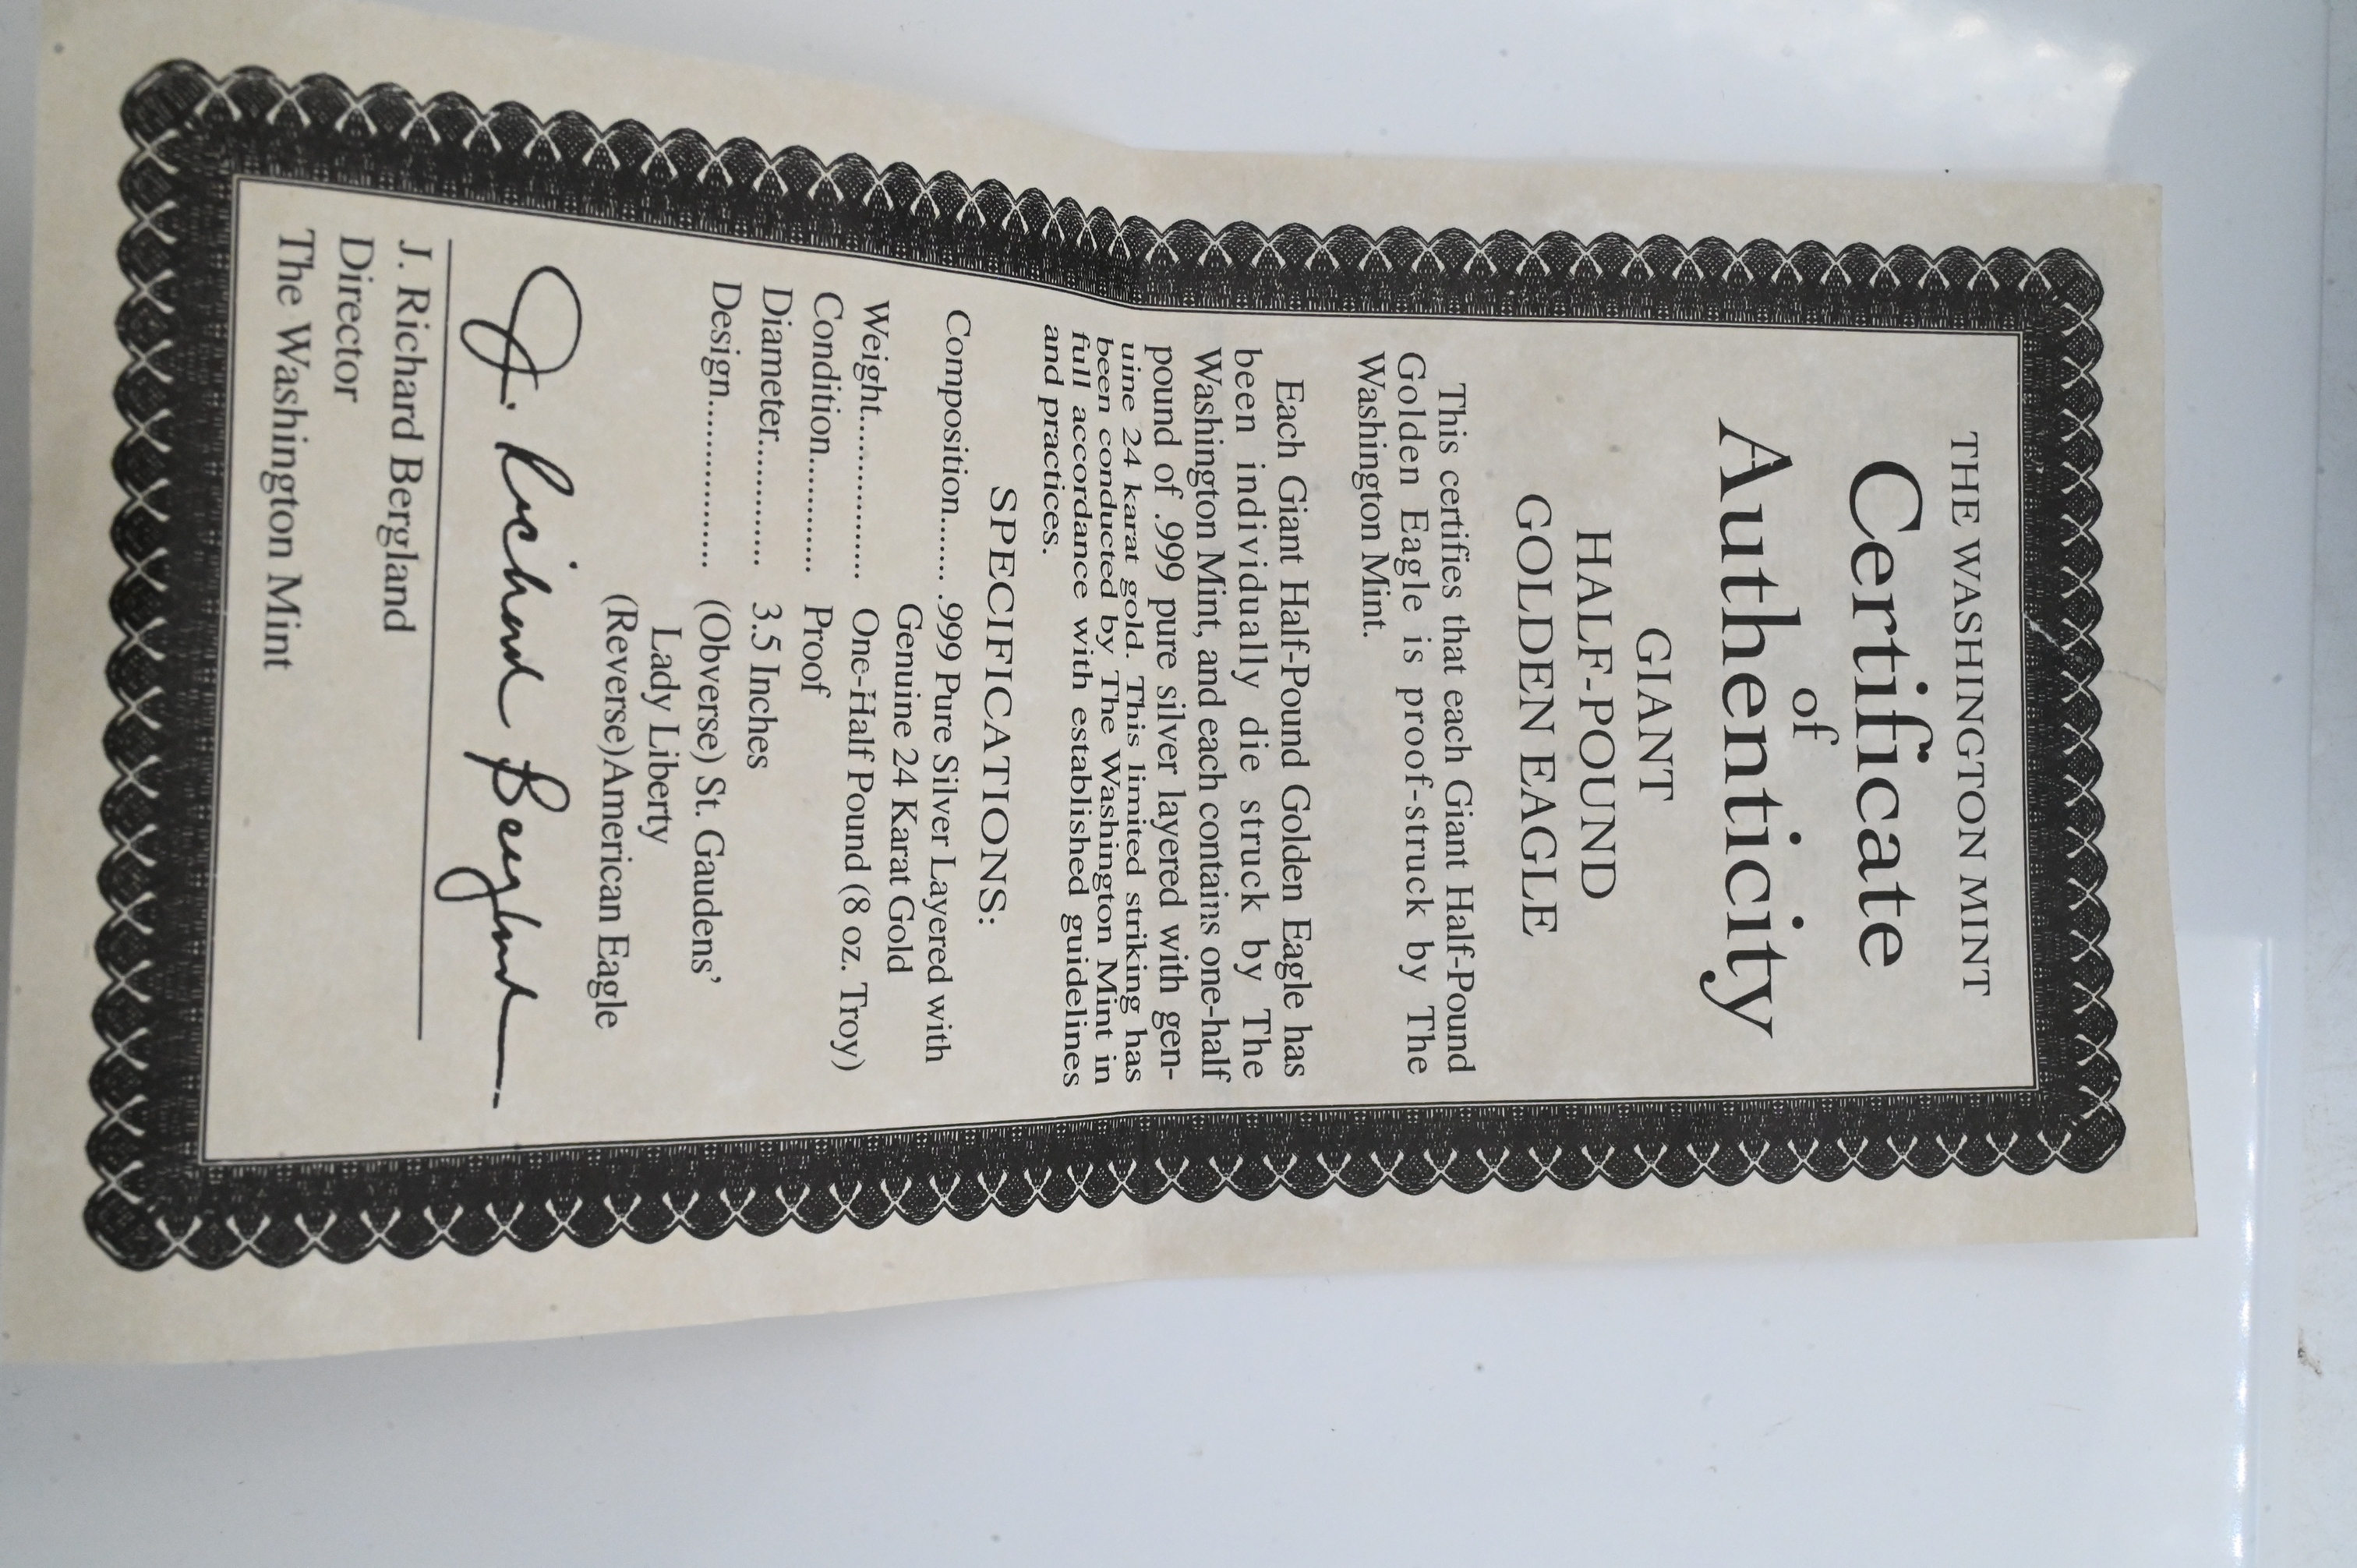 THE WASHINGTON MINT
Certificate
of
Authenticity
GIANT
HALF-POUND
GOLDEN EAGLE
This certifies that each Giant Half-Pound
Golden Eagle is proof-struck by The
Washington Mint.
Each Giant Half-Pound Golden Eagle has
been individually die struck by The
Washington Mint, and each contains one-half
pound of .999 pure silver layered with gen-
uine 24 karat gold. This limited striking has
been conducted by The Washington Mint in
full accordance with established guidelines
and practices.
SPECIFICATIONS:
Composition....... .999 Pure Silver Layered with
Genuine 24 Karat Gold
Weight................ One-Half Pound (8 oz. Troy)
Condition............ Proof
Diameter............ 3.5 Inches
Design................ (Obverse) St. Gaudens’
Lady Liberty
(Reverse)American Eagle
J. Richard Bergland
J. Richard Bergland
Director
The Washington Mint